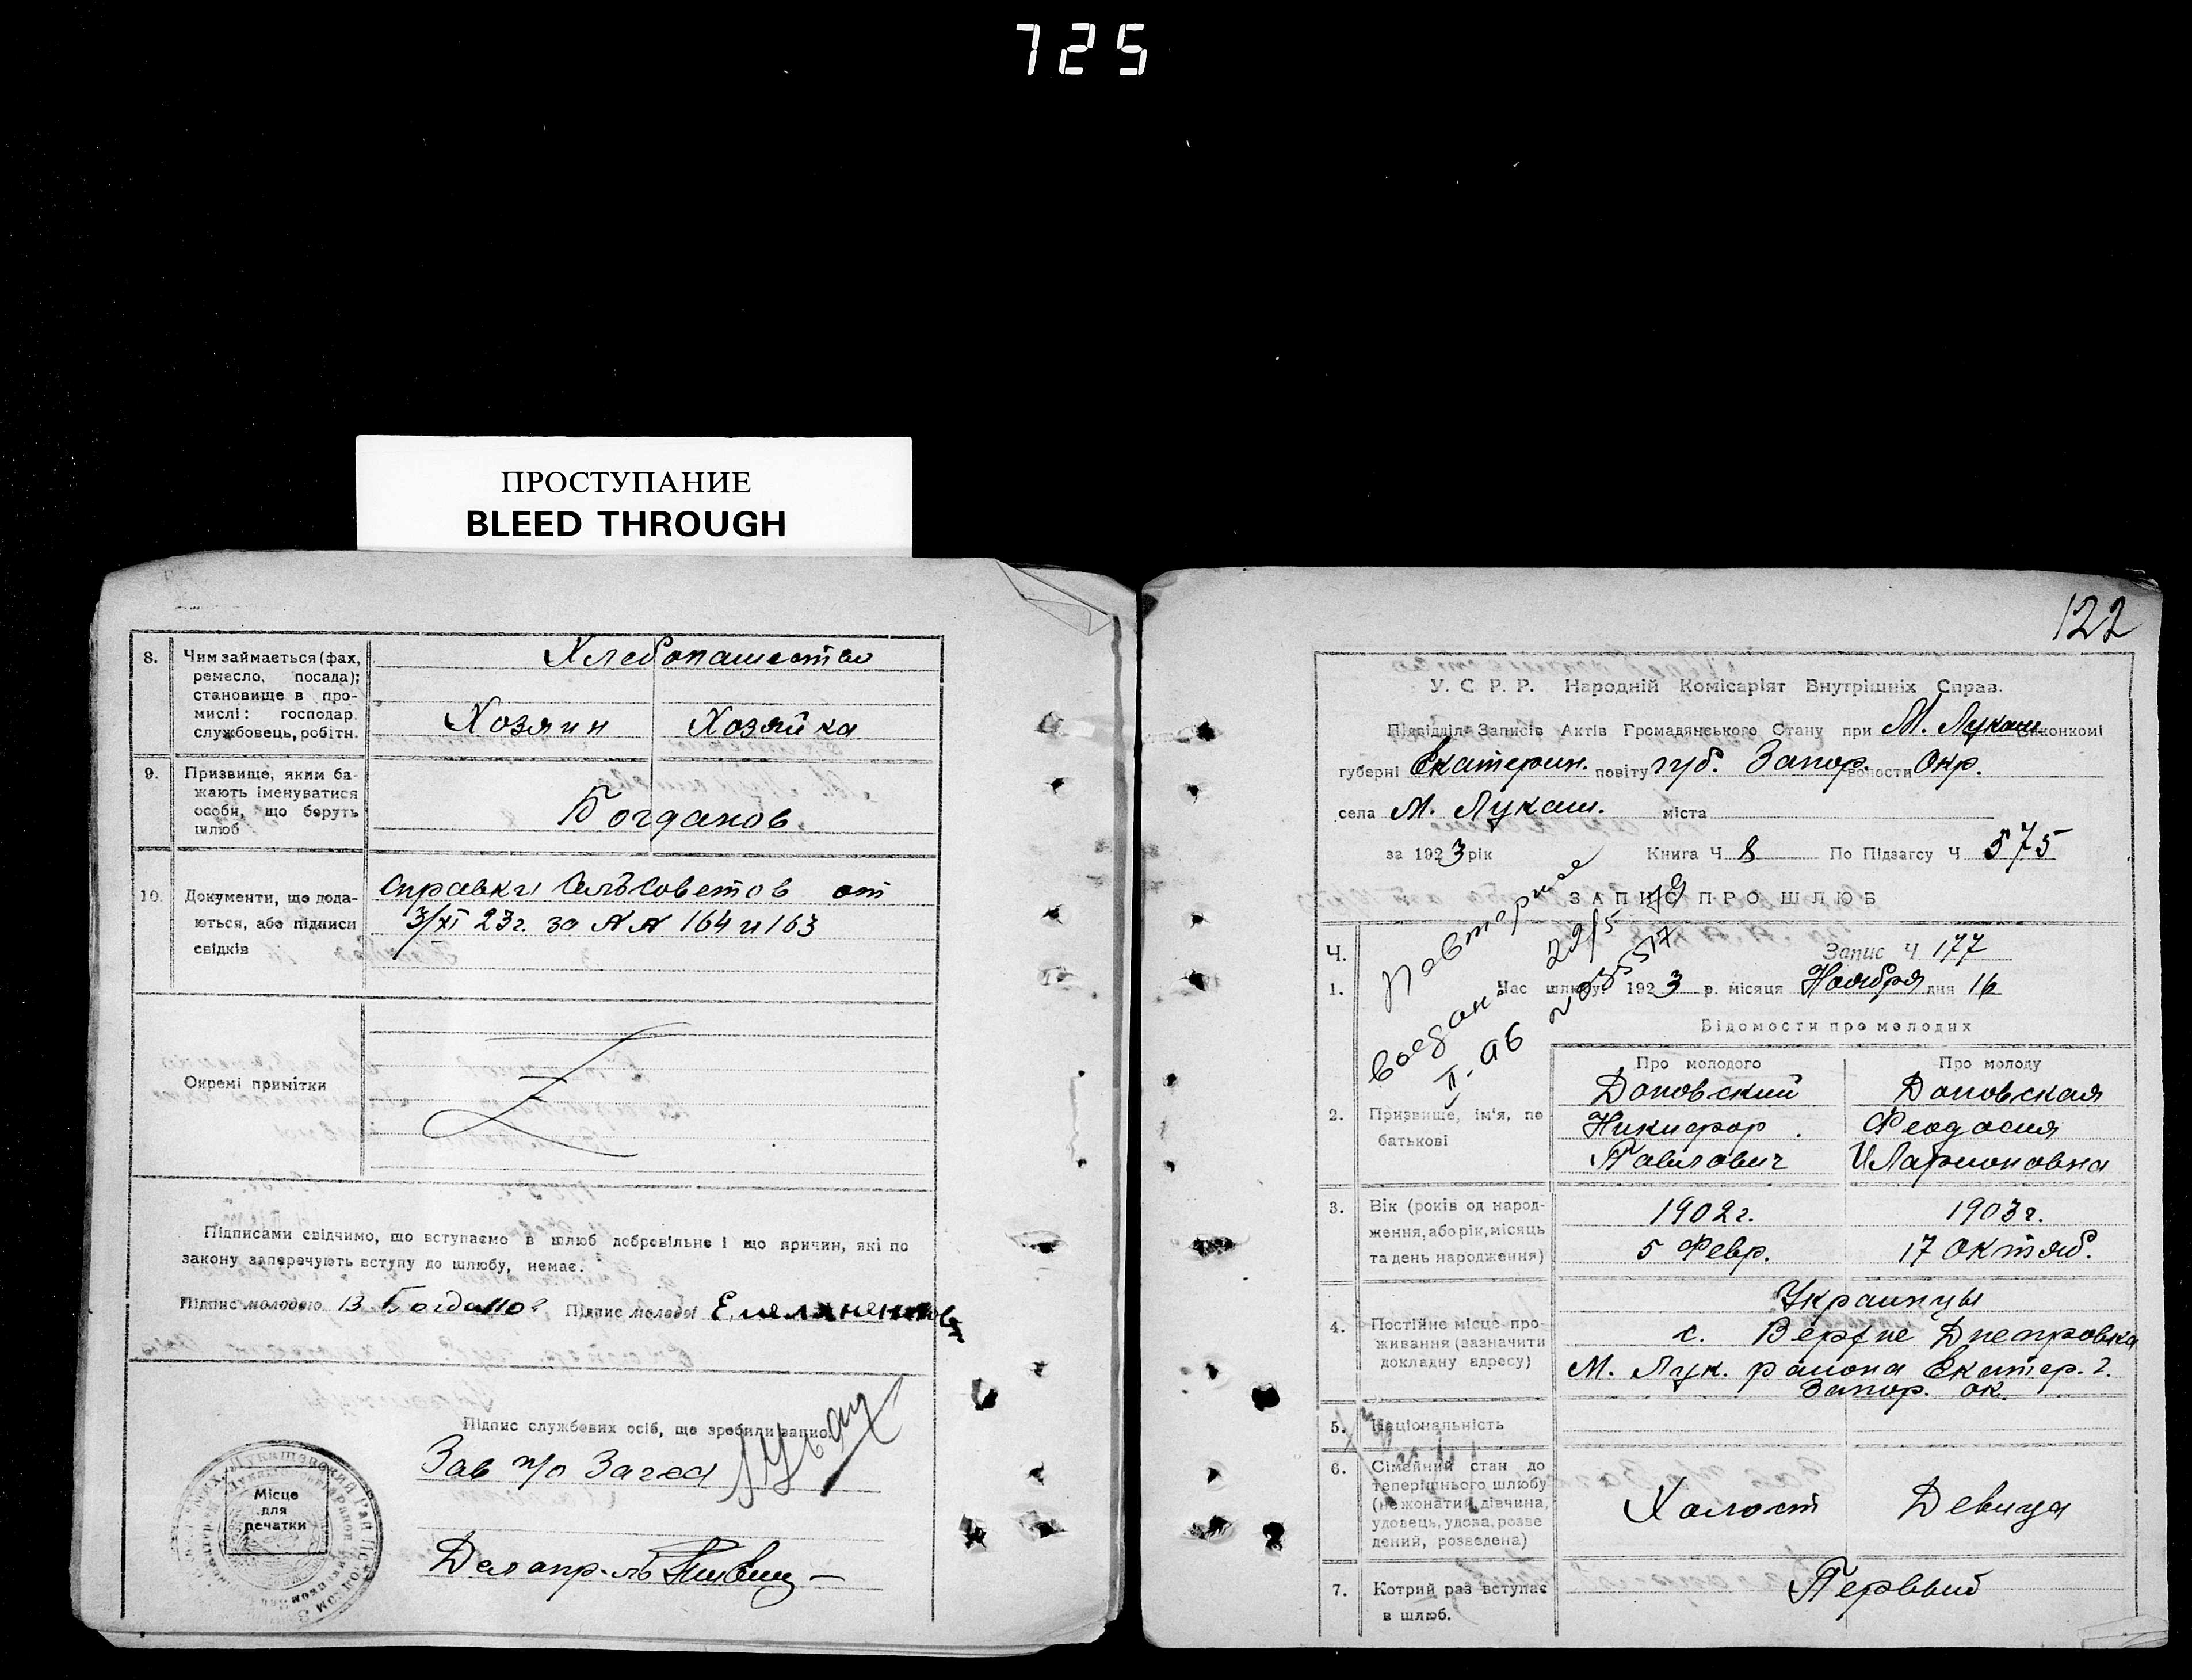 725
ПРОСТУПАНИЕ
BLEED THROUGH
8. Чим займається (фах,
ремесло, посада);
становище в про-
мислі: господар.
службовець, робітн.
Хлебопашество
Хозяин Хозяйка
9. Призвище, яким ба-
жають іменуватися
особи, що беруть
шлюб
Богданов
10. Документи, що дода-
ються, або підписи
свідків
Справки Сельсоветов от
3/XI 23г. за №№ 164 и 163
Окремі примітки
Підписами свідчимо, що вступаємо в шлюб добровільне і що причин, які по
закону заперечують вступу до шлюбу, немає.
Підпис молодого В Богданов Підпис молодої Емельяненкова
Підпис службових осіб, що зробили запис.
Зав п/о Загса
Делопр-ль
Місце
для
печатки
122
У. С. Р. Р. Народній Комісаріят Внутрішніх Справ.
Підвідділ Записів Актів Громадянського Стану при М. Лукаш. конкомі
губерні Екатерин. повіту губ. Запор. волости Окр.
села М. Лукаш. міста
за 1923 рік Книга Ч 8 По Підзагсу Ч 575
ЗАПИС ПРО ШЛЮБ
Повторное
Ч. Запис Ч 177
1. Час шлюбу: 1923 р. місяця Ноября дня 16
Відомости про молодих
Про молодого Про молоду
2. Призвище, ім'я, по
батькові
Доновский Доновская
Никифор Феодосия
Павлович Иларионовна
3. Вік (років од народ-
ження, або рік, місяць
та день народження)
1902г. 1903г.
5 Февр. 17 Октяб.
Украинцы
4. Постійне місце про-
живання (зазначити
докладну адресу)
с. Верхне Днепровка
М. Лук. района Екатер. г.
Запор. ок.
5. Національність
6. Сімейний стан до
теперішнього шлюбу
(нежонатий, дівчина,
удовець, удова, розве
дений, розведена)
Холост Девица
7. Котрий раз вступає
в шлюб.
Первый